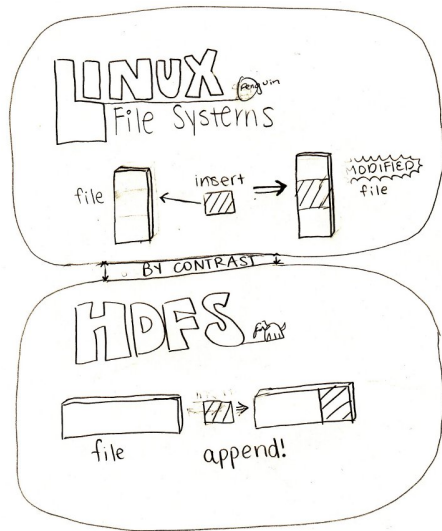 LINUX
Penguin
File Systems
insert
file
MODIFIED
file
BY CONTRAST
HDFS
file
append!